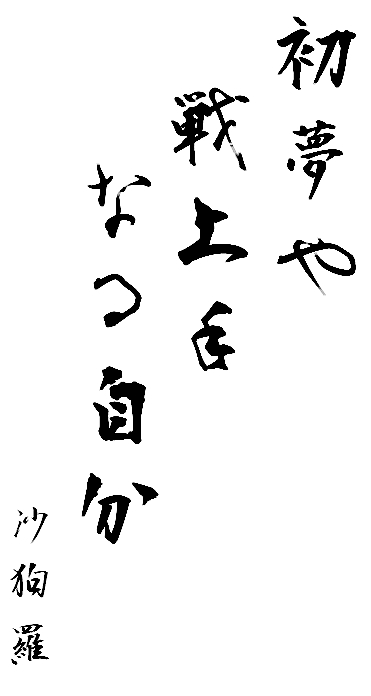 初夢や
戦上手
なる自分
沙狗羅